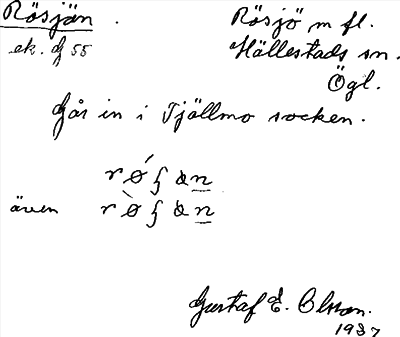 Rösjön.
ek. bl 55
Rösjö m fl.
Hällestads sn.
Ögl.
Går in i Tjällmo socken.
även
Gustaf E. Olsson.
1937